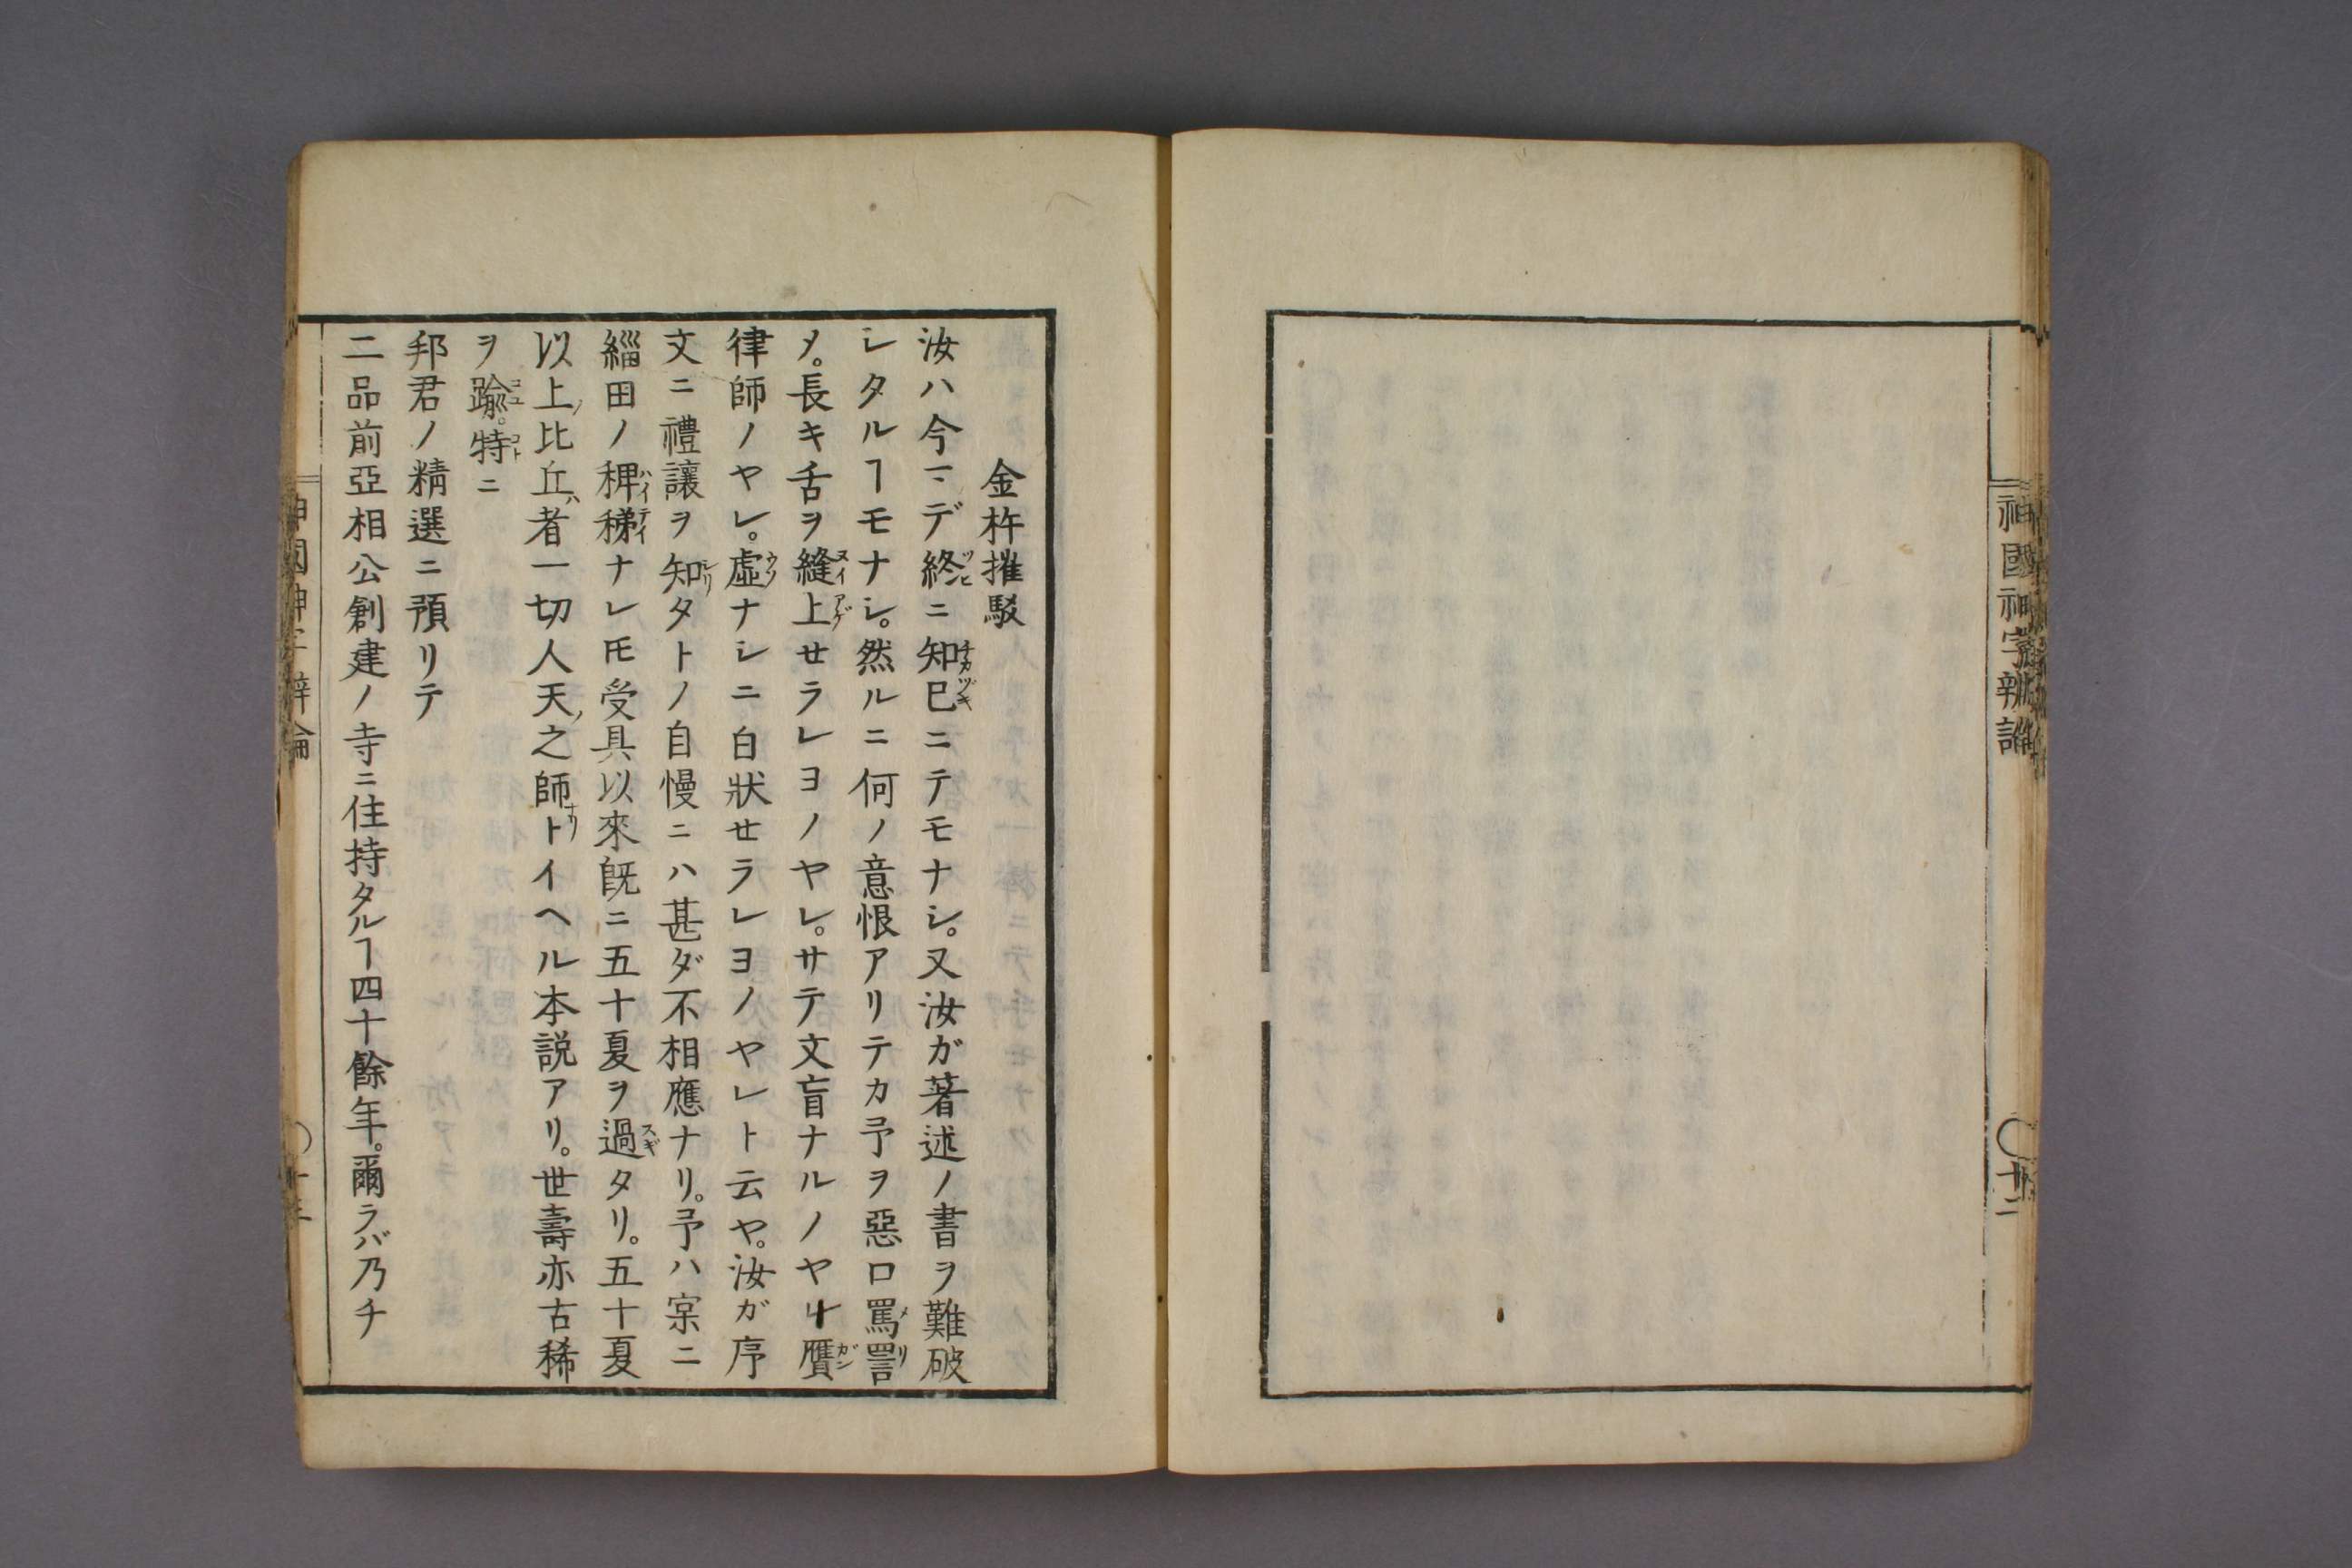 神國神字辨論
〇十二
金杵摧駁
汝ハ今マデ終ニ知已ニテモナシ。又汝ガ著述ノ書ヲ難破
シタルヿモナシ。然ルニ何ノ意恨アリテカ予ヲ惡口罵詈
メ。長キ舌ヲ縫上セラレヨノヤレ。サテ文盲ナルノヤレ贋
律師ノヤレ。虛ナシニ白狀セラレヨノヤレト云ヤ。汝ガ序
文ニ禮讓ヲ知タトノ自慢ニハ甚ダ不相應ナリ。予ハ寀ニ
緇田ノ稗稊ナレ𪜈受具以來既ニ五十夏ヲ過タリ。五十夏
以上ノ比丘ハ者一切人天ノ之師ナリトイヘル本説アリ。世壽亦古稀
ヲ踰。特ニ
邦君ノ精選ニ預リテ
二品前亞相公創建ノ寺ニ住持タルヿ四十餘年。爾ラバ乃チ
神國神字辨論